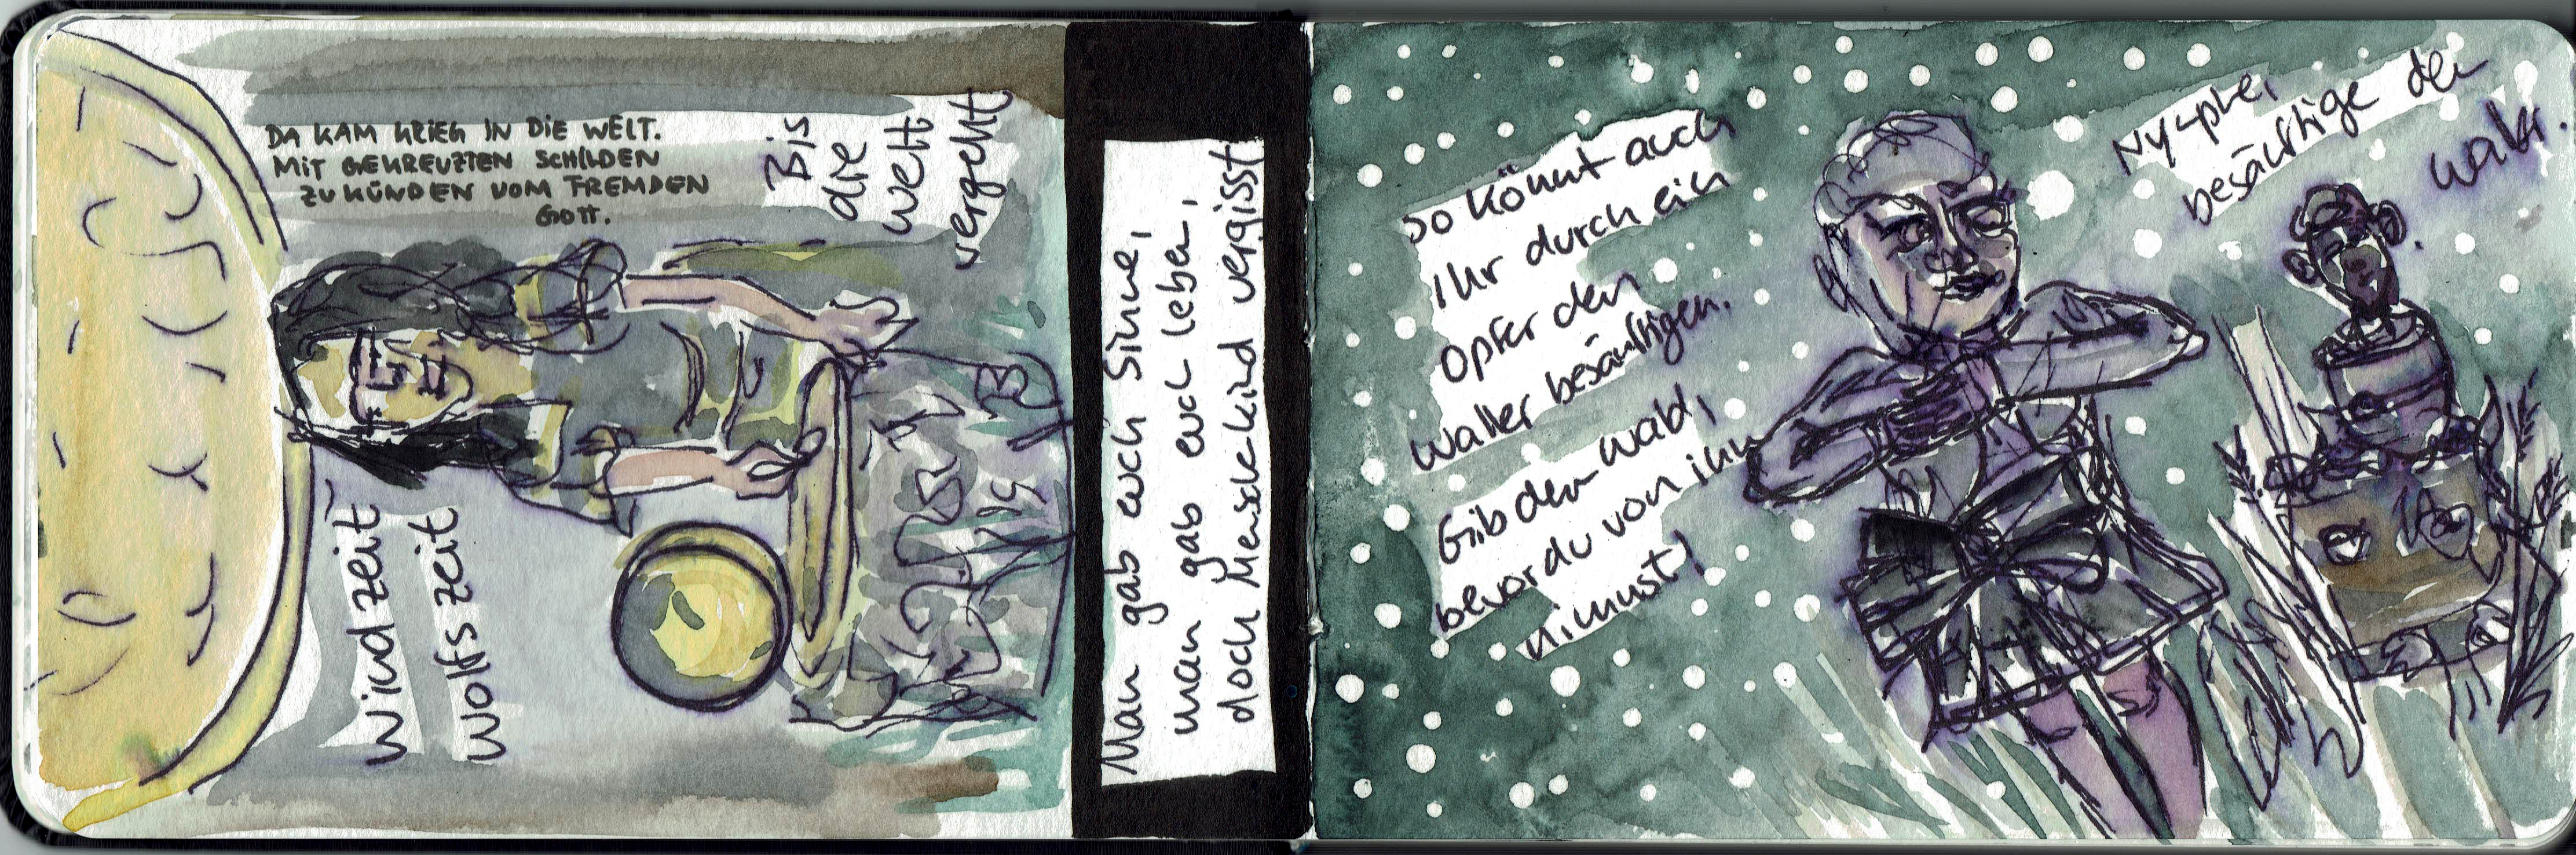 DA KAM KRIEG IN DIE WELT.
MIT GEKREUZTEN SCHILDEN
ZU KÜNDEN VOM FREMDEN
GOTT.
Bis
die
welt
vergeht
Windzeit
Wolfszeit
Man gab euch Sinne,
man gab euch leben,
doch Menschenkind vergisst
So könnt auch
Ihr durch ein
Opfer den
Waller besänftigen.
Gib dem Wald,
bevor du von ihm
nimmst!
Nymphe,
besänftige den
Waller.